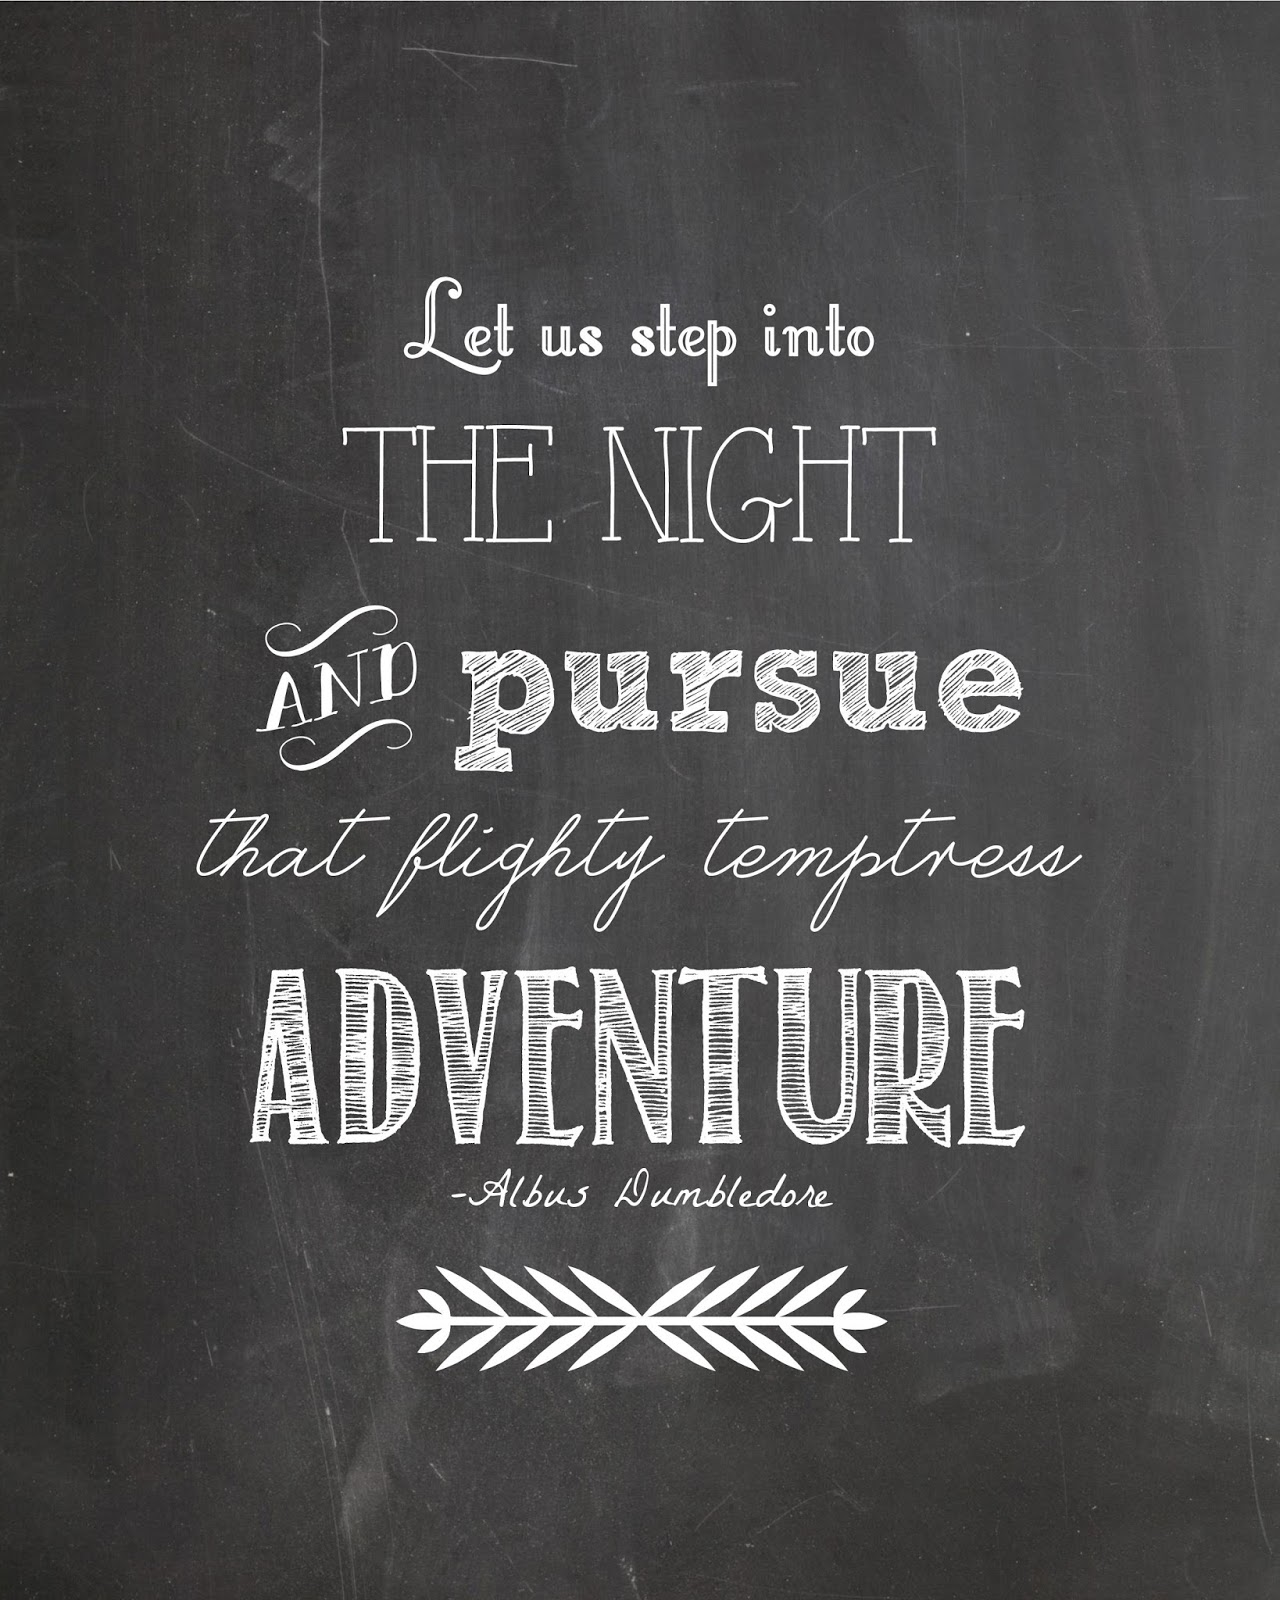 Let us step into
THE NIGHT
AND pursue
that flighty temptress
ADVENTURE
-Albus Dumbledore